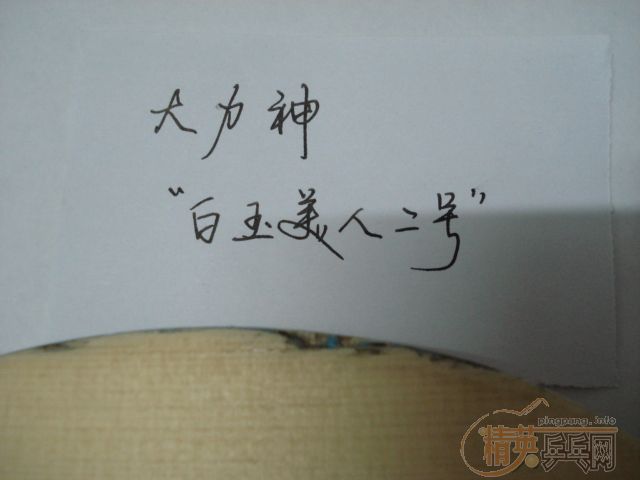 大力神
“白玉美人二号”
pingpung.info
精英乒乓网